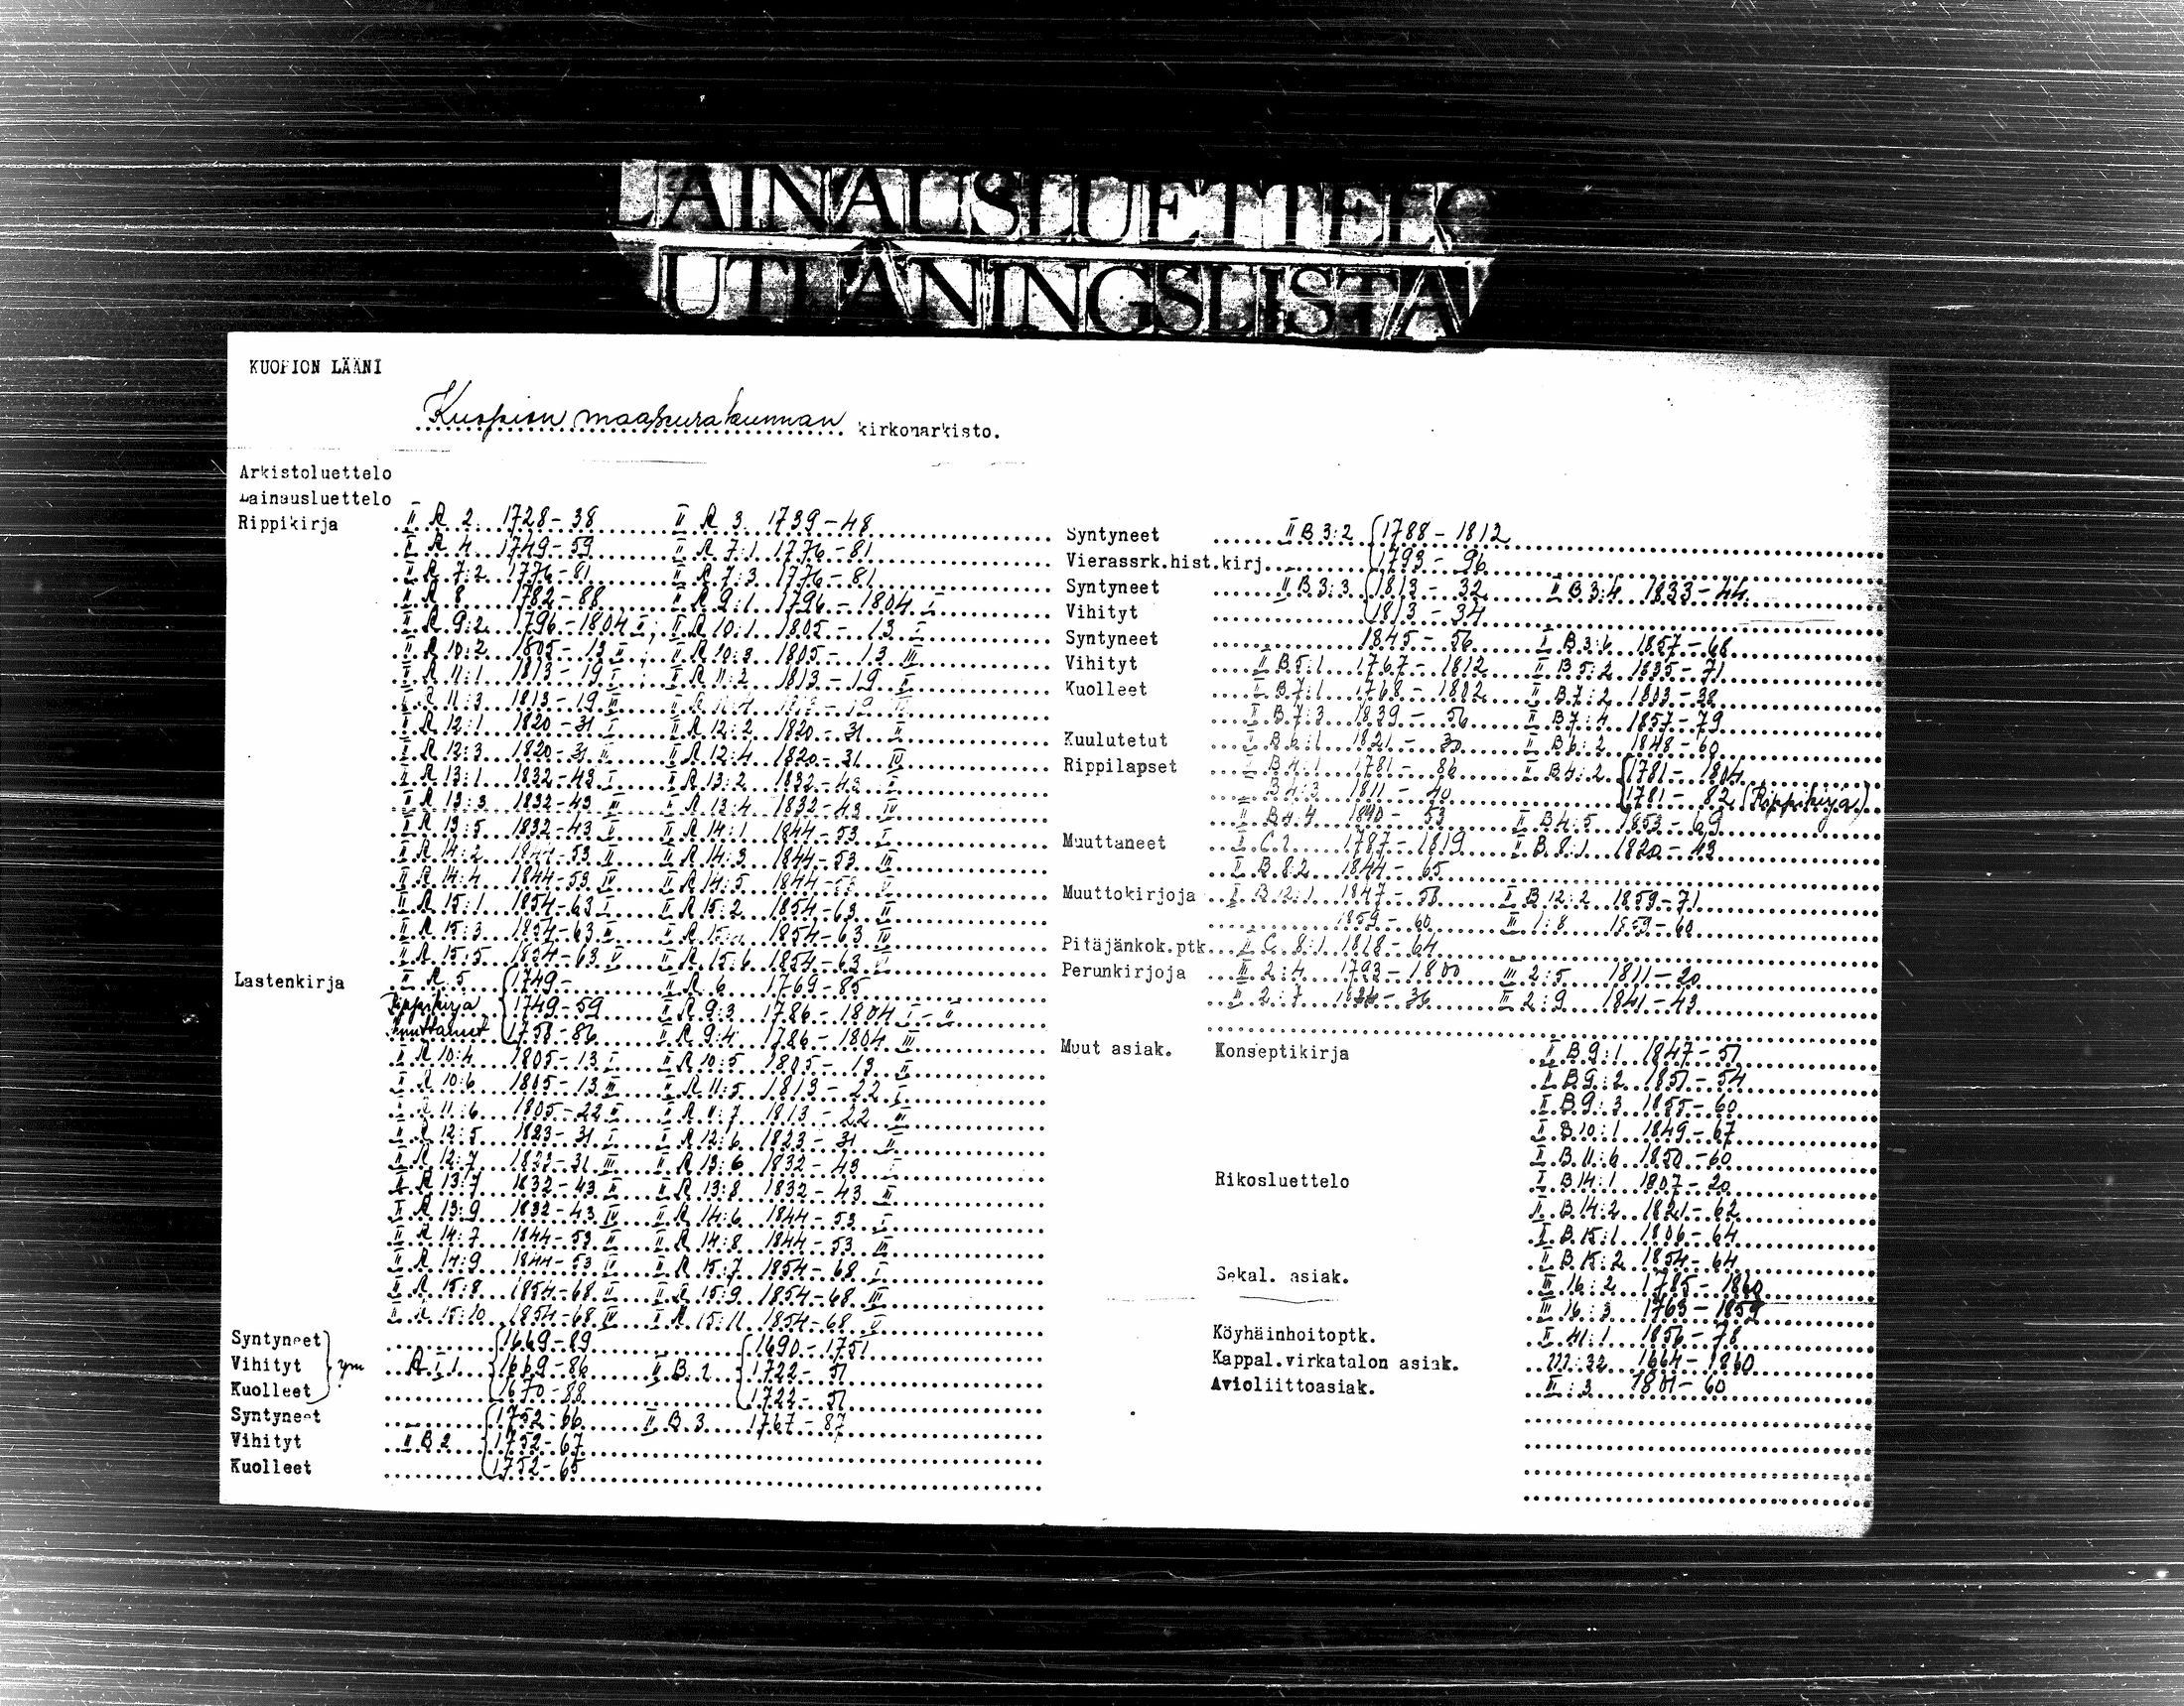 LAINAUSLUETTELO
UTLÅNINGSLISTA
KUOPION LÄÄNI
Kuopion maaseurakunnan kirkonarkisto.
Arkistoluettelo
Lainausluettelo
Rippikirja II A 2 1728-38 II A 3 1739-48
II A 4 1749-59 II A 7:1 1776-81
II A 7:2 1776-81 II A 7:3 1776-81
II A 8 1782-88 II A 9:1 1796-1804 I
II A 9:2 1796-1804 II; II A 10:1 1805-13 I
II A 10:2 1805-13 II; II A 10:3 1805-13 III
II A 11:1 1813-19 I; II A 11:2 1813-19 II
II A 11:3 1813-19 III II A 11:4 1813-19 IV
II A 12:1 1820-31 I II A 12:2 1820-31 II
II A 12:3 1820-31 III II A 12:4 1820-31 IV
II A 13:1 1832-43 I II A 13:2 1832-43 II
II A 13:3 1832-43 III II A 13:4 1832-43 IV
II A 13:5 1832-43 V II A 14:1 1844-53 I
II A 14:2 1844-53 II II A 14:3 1844-53 III
II A 14:4 1844-53 IV II A 14:5 1844-53 V
II A 15:1 1854-63 I II A 15:2 1854-63 II
II A 15:3 1854-63 III II A 15:4 1854-63 IV
II A 15:5 1854-63 V II A 15:6 1854-63 VI
Lastenkirja II A 5 1749- II A 6 1769-85
Rippikirja 1749-59 II A 9:3 1786-1804 I-II
Muuttaneet 1758-86 II A 9:4 1786-1804 III
II A 10:4 1805-13 I II A 10:5 1805-13 II
II A 10:6 1805-13 III II A 11:5 1813-22 I
II A 11:6 1805-22 II II A 11:7 1813-22 III
II A 12:5 1823-31 I II A 12:6 1823-31 II
II A 12:7 1823-31 III II A 13:6 1832-43 I
II A 13:7 1832-43 II II A 13:8 1832-43 III
II A 13:9 1832-43 IV II A 14:6 1844-53 I
II A 14:7 1844-53 II II A 14:8 1844-53 III
II A 14:9 1844-53 IV II A 15:7 1854-68 I
II A 15:8 1854-68 II II A 15:9 1854-68 III
II A 15:10 1854-68 IV II A 15:11 1854-68 V
Syntyneet 1669-89 1690-1751
Vihityt ym A I 1 1669-86 II B.1 1722-51
Kuolleet 1670-88 1722-51
Syntyneet 1752-66 II B.3 1767-87
Vihityt II B 2 1752-67
Kuolleet 1752-65
Syntyneet II B 3:2 1788-1812
Vierassrk.hist.kirj. 1793-96
Syntyneet II B 3:3 1813-32 II B 3:4 1833-44
Vihityt 1813-34
Syntyneet 1845-56 II B 3:6 1857-68
Vihityt II B 5:1 1767-1812 II B 5:2 1835-71
Kuolleet II B 7:1 1768-1802 II B 7:2 1803-38
II B 7:3 1839-56 II B 7:4 1857-79
Kuulutetut II B 6:1 1821-30 II B 6:2 1848-60
Rippilapset II B 4:1 1781-86 II B 4:2 1781-1804
B 4:3 1811-40 1781-82 (Rippikirja)
II B 4:4 1840-53 II B 4:5 1853-69
Muuttaneet I C.2 1787-1819 II B 8:1 1820-43
II B 8:2 1844-65
Muuttokirjoja II B 12:1 1847-58 II B 12:2 1859-71
1859-60 III 1:8 1859-60
Pitäjänkok.ptk. II C 8:1 1818-64
Perunkirjoja III 2:4 1793-1800 III 2:5 1811-20
III 2:7 III 2:9 1841-43
Muut asiak. Konseptikirja II B 9:1 1847-51
II B 9:2 1851-54
II B 9:3 1855-60
II B 10:1 1849-67
II B 11:6 1850-60
Rikosluettelo II B 14:1 1807-20
II B 14:2 1821-62
II B 15:1 1806-64
II B 15:2 1854-64
Sekal. asiak. III 16:2 1785-1860
III 16:3 1763-1859
Köyhäinhoitoptk. II 41:1 1856-78
Kappal.virkatalon asiak. III:32 1664-1860
Avioliittoasiak. II:3 1801-60